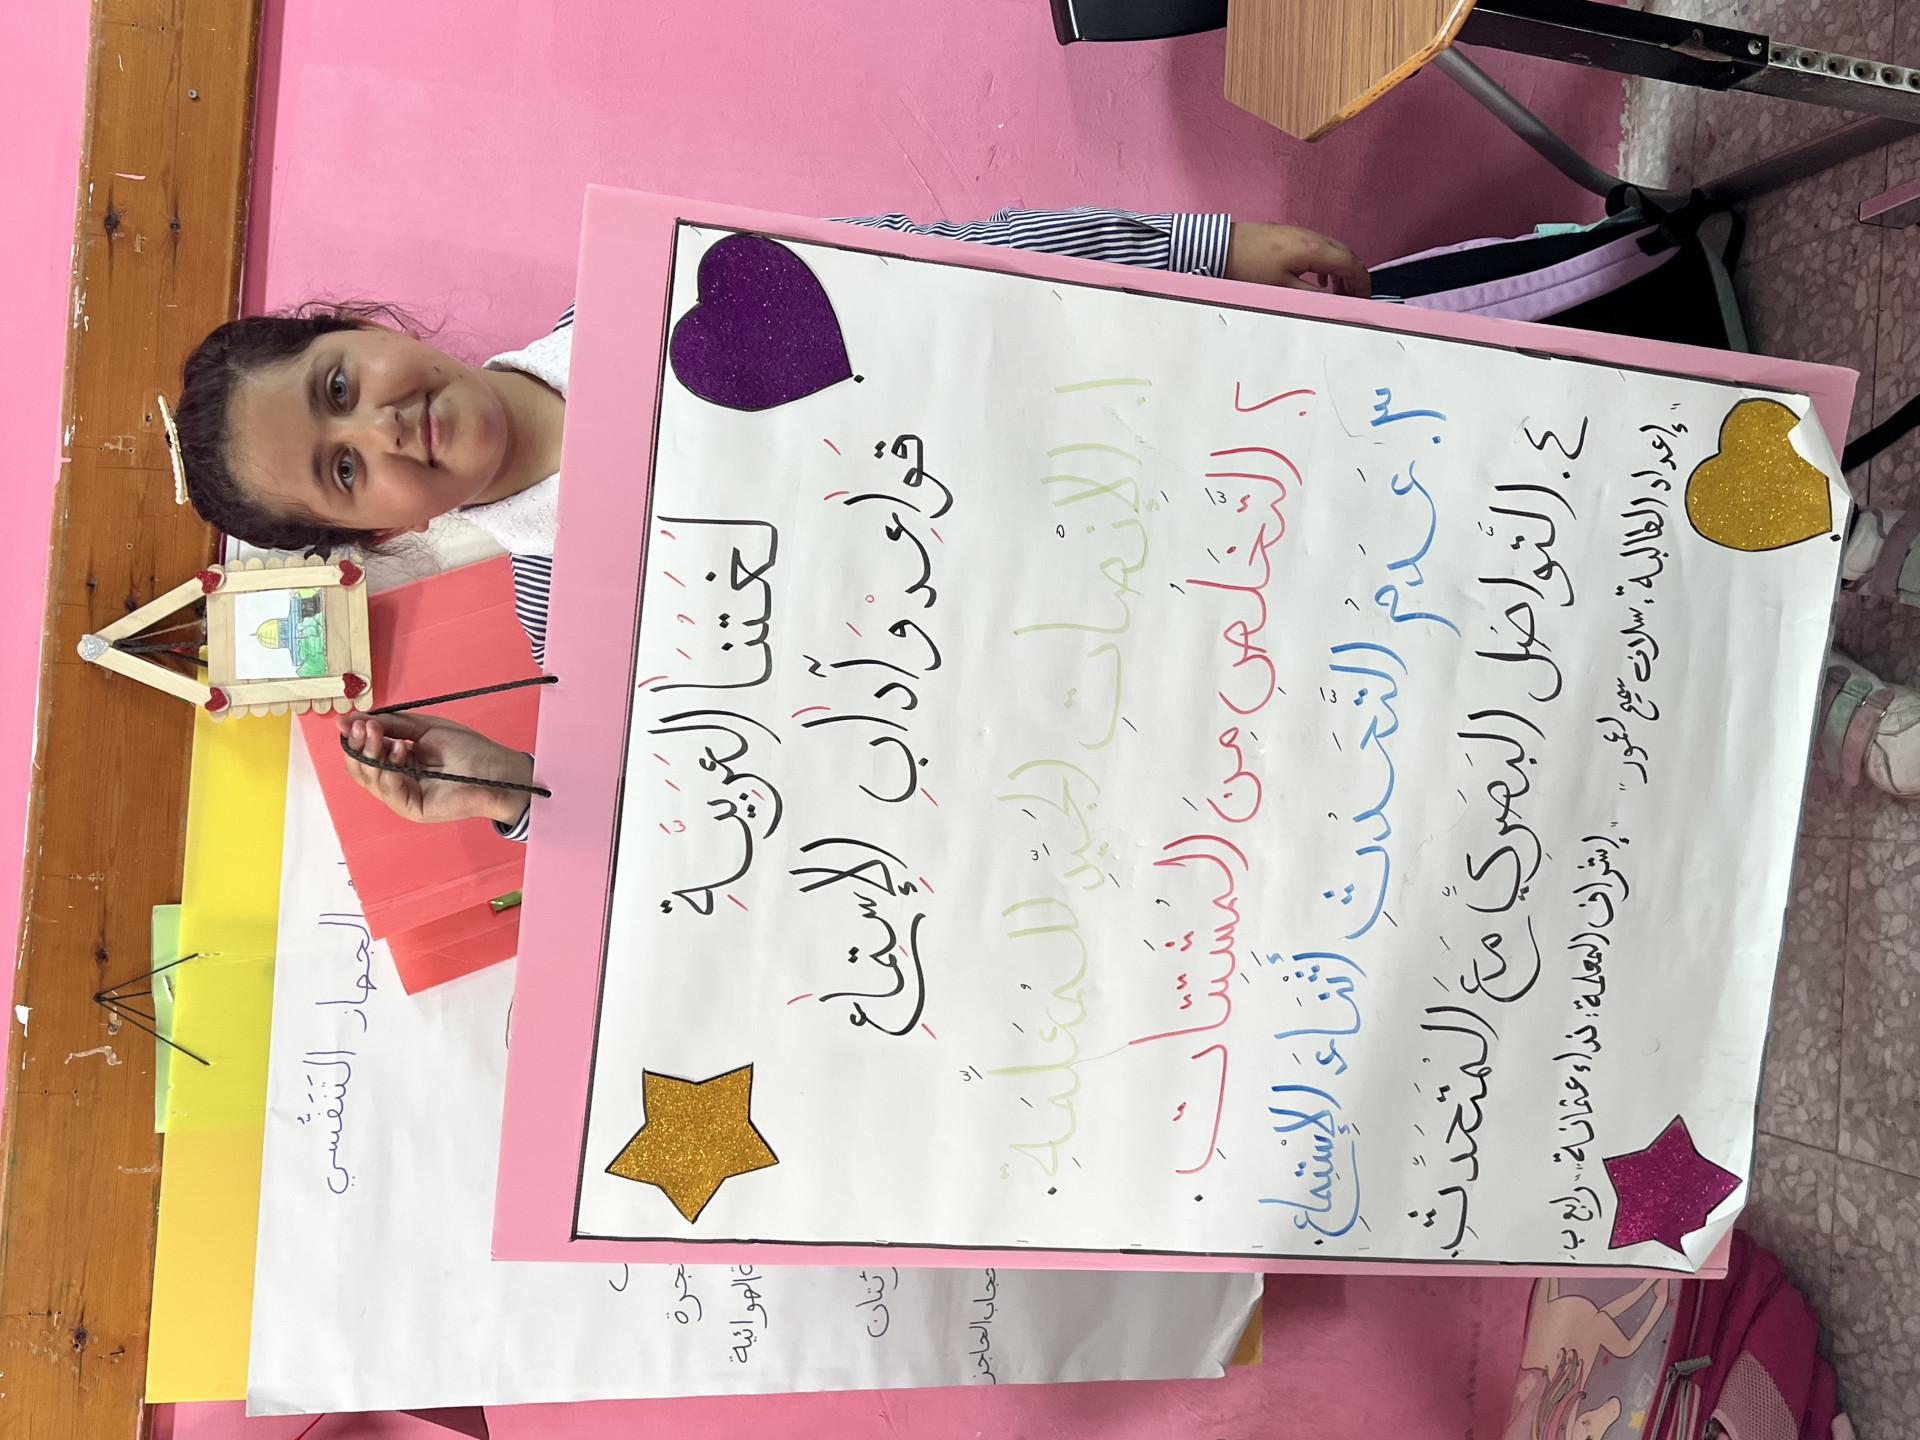 لُغَتُنَا العَرَبِيَّةِ
قَواعِدْ وَآدَابِ الإِسْتِمَاعِ
١. الإِنْصَاتِ الجَيِّدِ للمُعَلِّمَةِ.
٢. التَّخَلُصِ مِنَ المُشَتِتَاتِ.
٣. عَدَمُ التَّحَدُثِ أَثْنَاءَ الإِسْتِمَاعِ.
٤. التَّوَاصُل البَصَرِيَّ مَعَ المُتَحَدِّثِ.
"إعداد الطالبة:
"إشراف المعلمة: نداء عثمانة" رابع ب.
الجهاز التَنَفُسي
الهوائية
الحجاب الحاجز